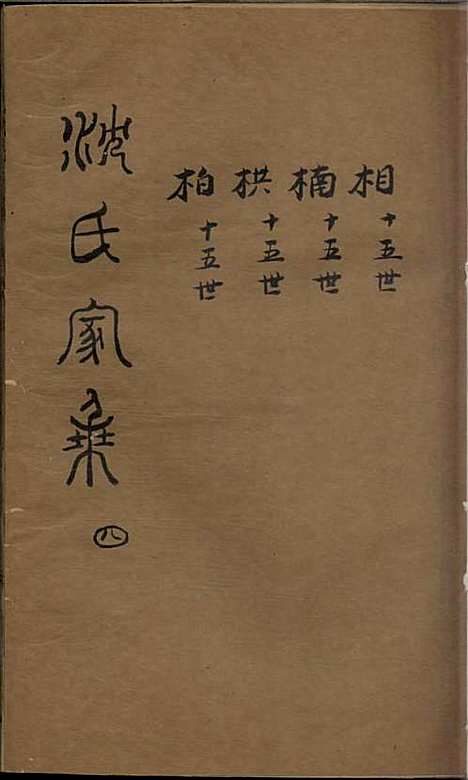 相 十五世
楠 十五世
栱 十五世
柏 十五世
沈氏家乘 八